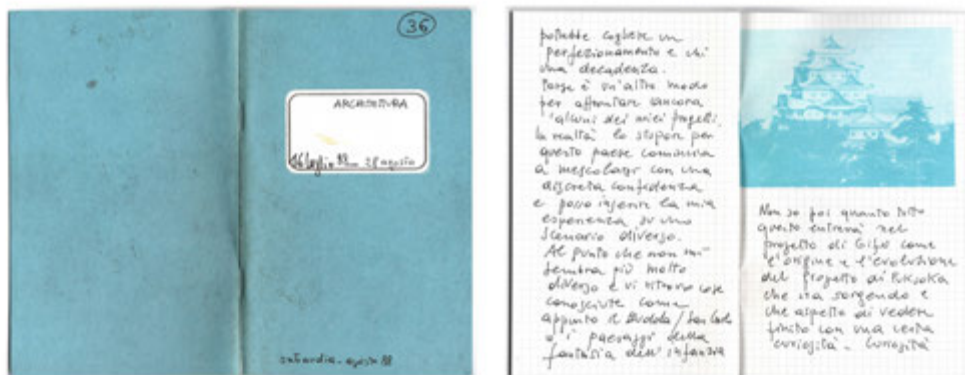 36
ARCHITETTURA
16 luglio 88 - 28 agosto
agosto 88
potrebbe cogliere un
perfezionamento e chi
una decadenza.
Forse è un'altro modo
per affrontare ancora
alcuni dei miei progetti.
In realtà lo stupore per
questo paese comincia
a mescolarsi con una
discreta confidenza
e posso inserire la mia
esperienza su uno
scenario diverso.
Al punto che non mi
sembra più molto
diverso e vi ritrovo cose
conosciute come
appunto il Budda / San Carlo
o i paesaggi della
fantasia dell'infanzia
Non so poi quanto tutto
questo entrerà nel
progetto di Gifu come
l'origine e l'evoluzione
del progetto di Fukuoka
che sta sorgendo e
che aspetto di vedere
finito con una certa
curiosità. Curiosità